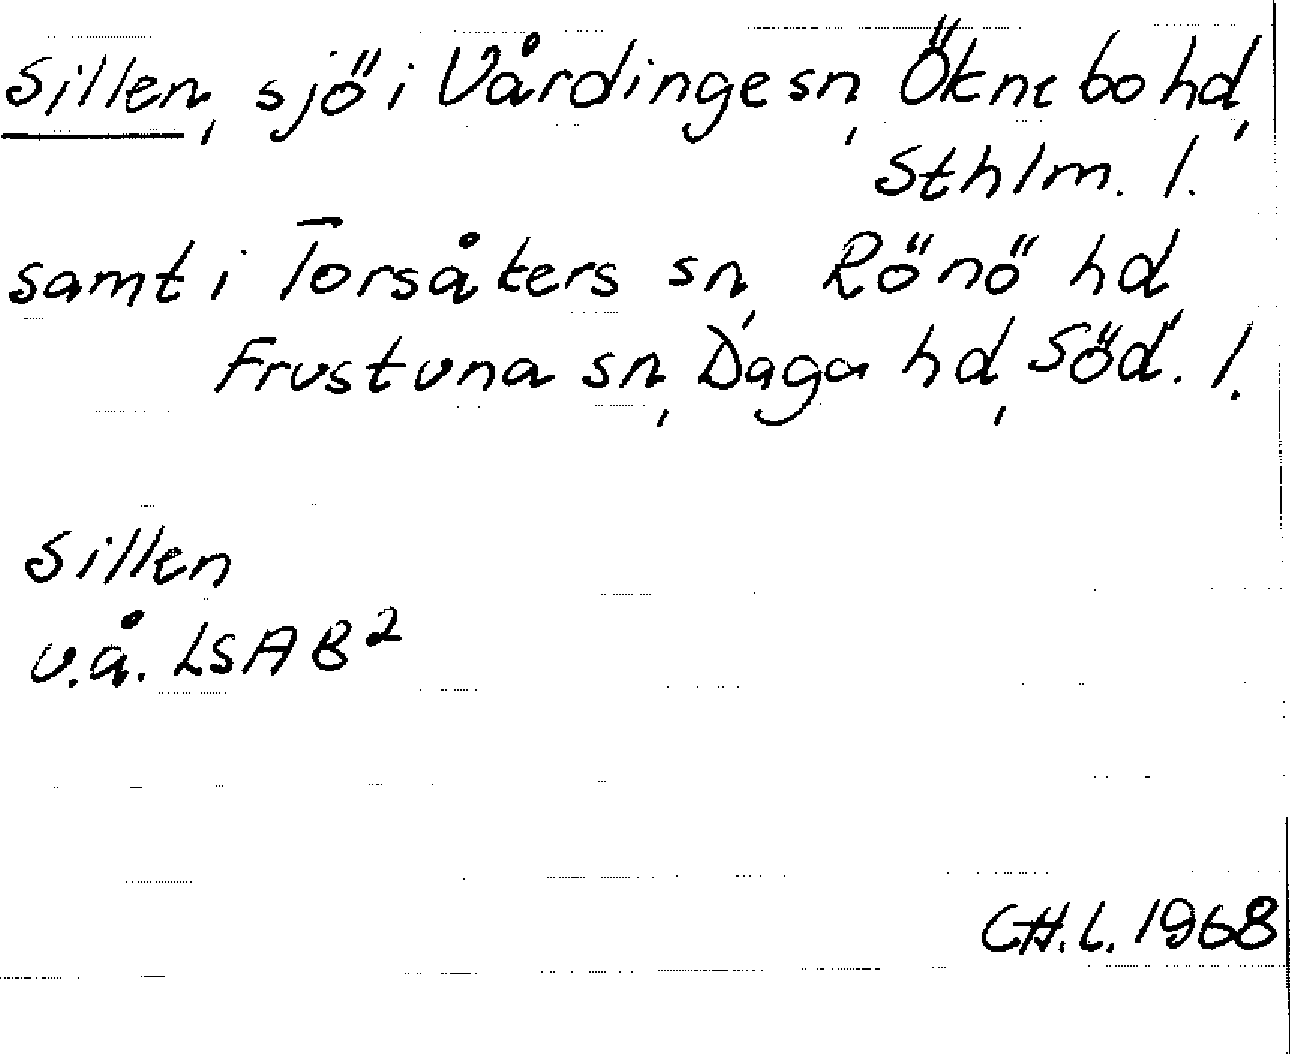 Sillen, sjö i Vårdinge sn, Öknebo hd,
Sthlm. l.
samt i Torsåkers sn, Rönö hd
Frustuna sn, Daga hd, Söd. l.
Sillen
v.å. LSA B²
CH.L. 1968